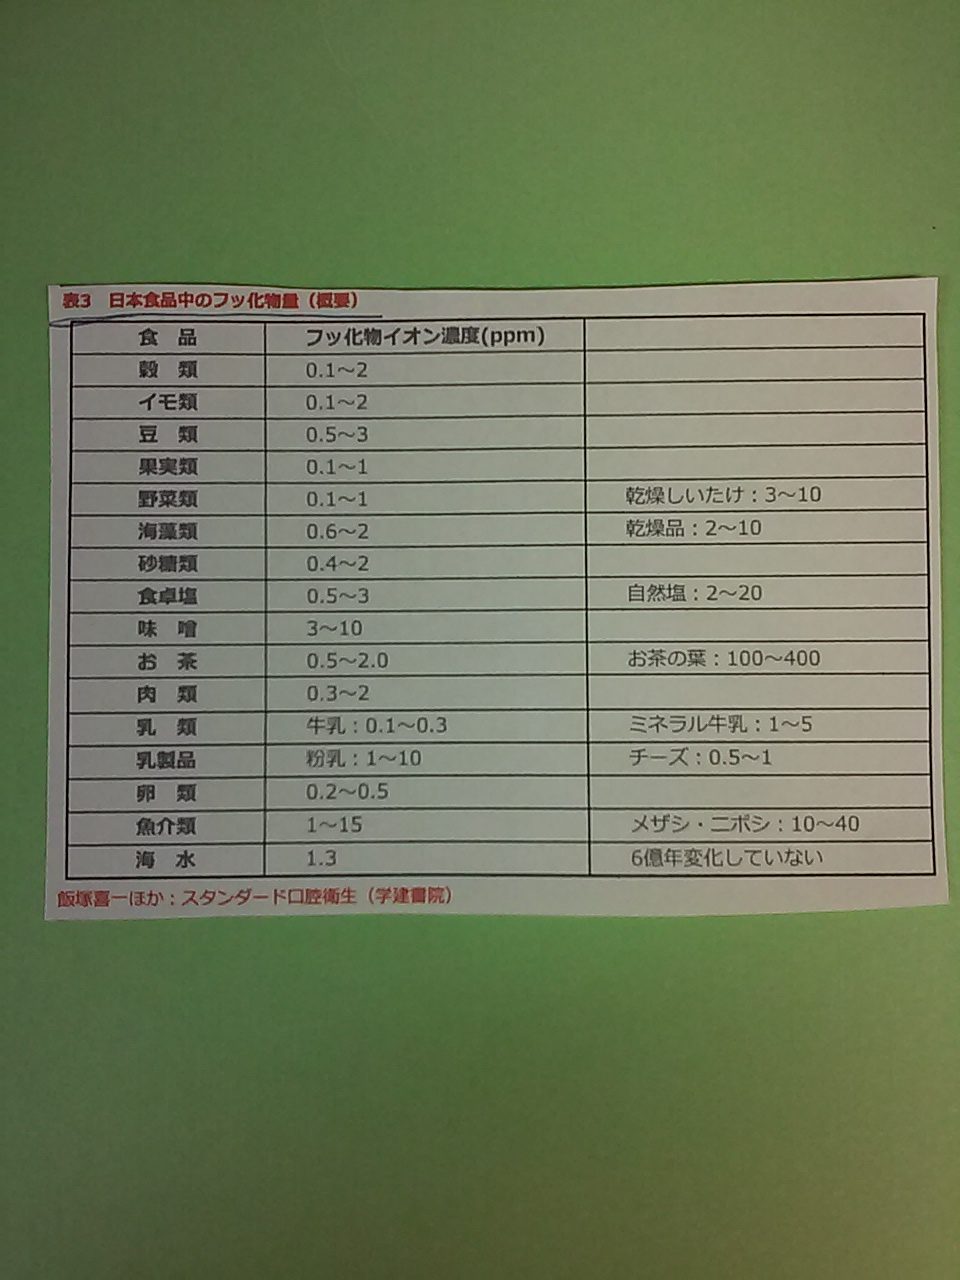 表3 日本食品中のフッ化物量（概要）
食 品 フッ化物イオン濃度(ppm)
穀 類 0.1～2
イモ類 0.1～2
豆 類 0.5～3
果実類 0.1～1
野菜類 0.1～1 乾燥しいたけ：3～10
海藻類 0.6～2 乾燥品：2～10
砂糖類 0.4～2
食卓塩 0.5～3 自然塩：2～20
味 噌 3～10
お 茶 0.5～2.0 お茶の葉：100～400
肉 類 0.3～2
乳 類 牛乳：0.1～0.3 ミネラル牛乳：1～5
乳製品 粉乳：1～10 チーズ：0.5～1
卵 類 0.2～0.5
魚介類 1～15 メザシ・ニボシ：10～40
海 水 1.3 6億年変化していない
飯塚喜一ほか：スタンダード口腔衛生（学建書院）